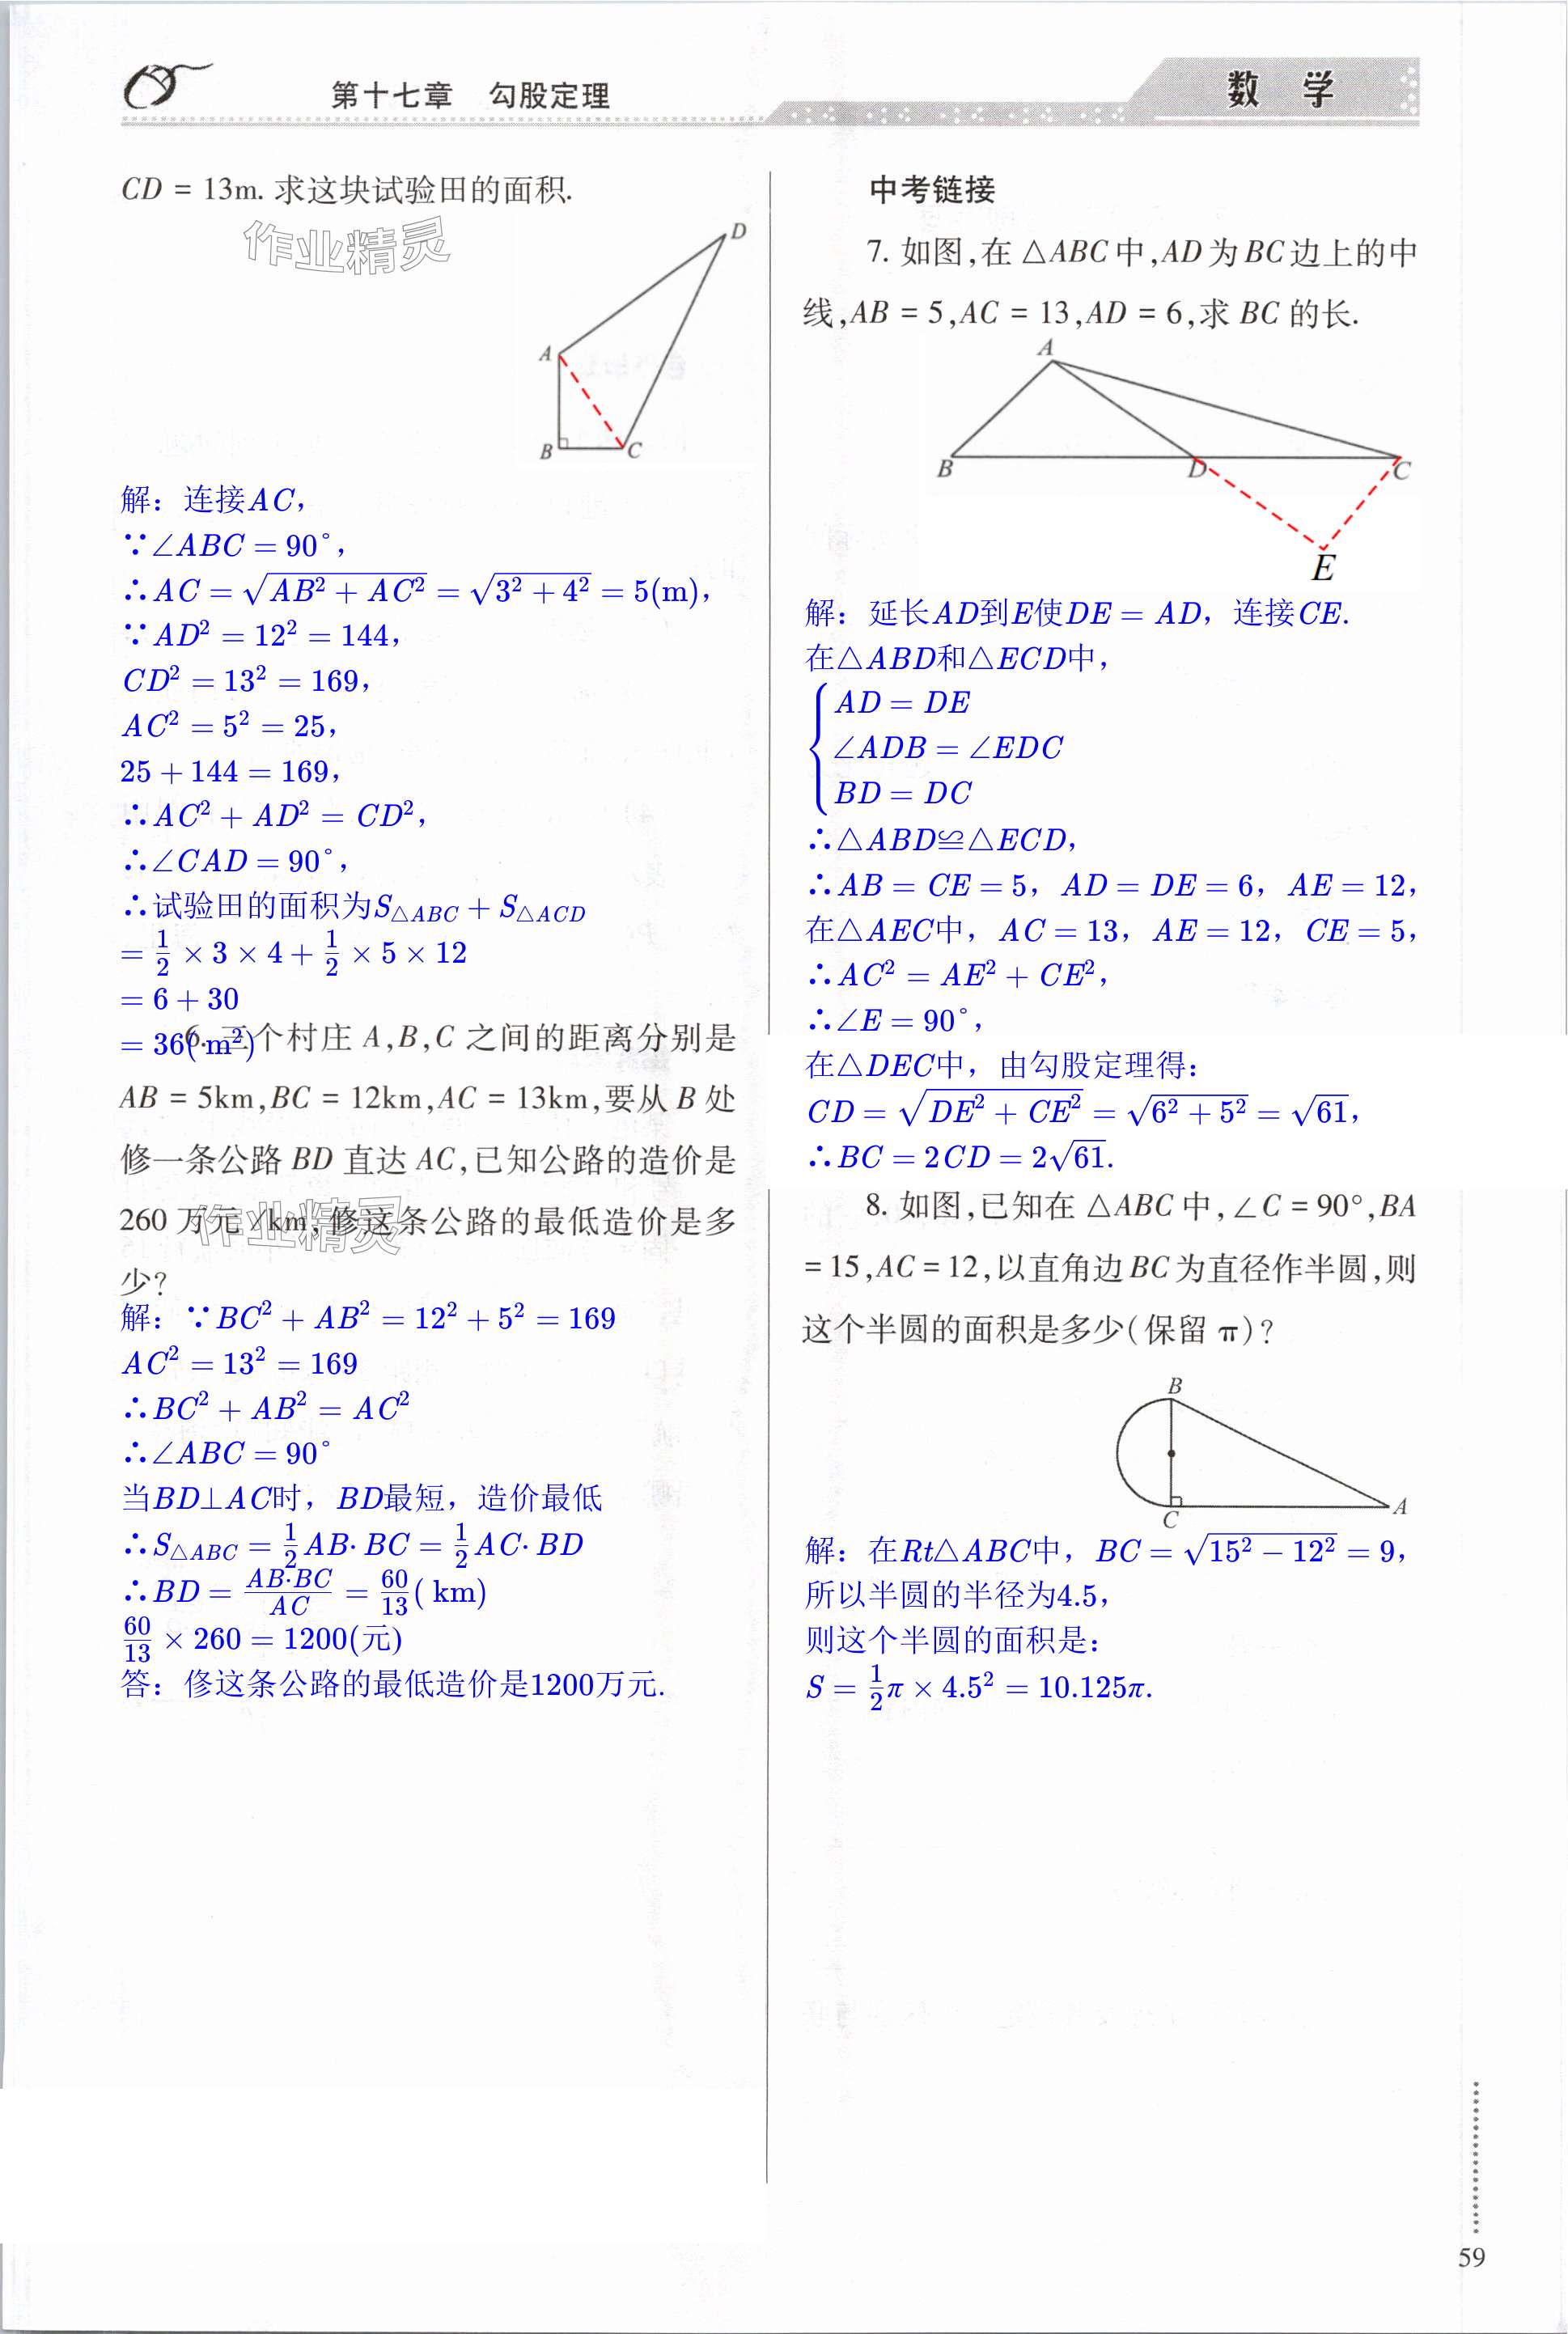 第十七章 勾股定理
数 学
CD = 13m. 求这块试验田的面积.
作业精灵
D
A
B
C
解：连接AC，
∵∠ABC = 90°，
∴AC = √(AB² + AC²) = √(3² + 4²) = 5(m)，
∵AD² = 12² = 144，
CD² = 13² = 169，
AC² = 5² = 25，
25 + 144 = 169，
∴AC² + AD² = CD²，
∴∠CAD = 90°，
∴试验田的面积为S△ABC + S△ACD
= 1/2 × 3 × 4 + 1/2 × 5 × 12
= 6 + 30
= 36( m²)
6. 三个村庄 A,B,C 之间的距离分别是
AB = 5km,BC = 12km,AC = 13km,要从 B 处
修一条公路 BD 直达 AC,已知公路的造价是
260 万元/km,修这条公路的最低造价是多
作业精灵
少?
解：∵BC² + AB² = 12² + 5² = 169
AC² = 13² = 169
∴BC² + AB² = AC²
∴∠ABC = 90°
当BD⊥AC时，BD最短，造价最低
∴S△ABC = 1/2 AB· BC = 1/2 AC· BD
∴BD = AB·BC/AC = 60/13( km)
60/13 × 260 = 1200(元)
答：修这条公路的最低造价是1200万元.
中考链接
7. 如图,在 △ABC 中,AD 为 BC 边上的中
线,AB = 5,AC = 13,AD = 6,求 BC 的长.
A
B
D
C
E
解：延长AD到E使DE = AD，连接CE.
在△ABD和△ECD中，
{AD = DE
∠ADB = ∠EDC
BD = DC
∴△ABD≌△ECD，
∴AB = CE = 5，AD = DE = 6，AE = 12，
在△AEC中，AC = 13，AE = 12，CE = 5，
∴AC² = AE² + CE²，
∴∠E = 90°，
在△DEC中，由勾股定理得：
CD = √(DE² + CE²) = √(6² + 5²) = √61，
∴BC = 2CD = 2√61.
8. 如图,已知在 △ABC 中,∠C = 90°,BA
= 15,AC = 12,以直角边 BC 为直径作半圆,则
这个半圆的面积是多少(保留 π)?
B
C
A
解：在Rt△ABC中，BC = √(15² − 12²) = 9，
所以半圆的半径为4.5，
则这个半圆的面积是：
S = 1/2 π × 4.5² = 10.125π.
59